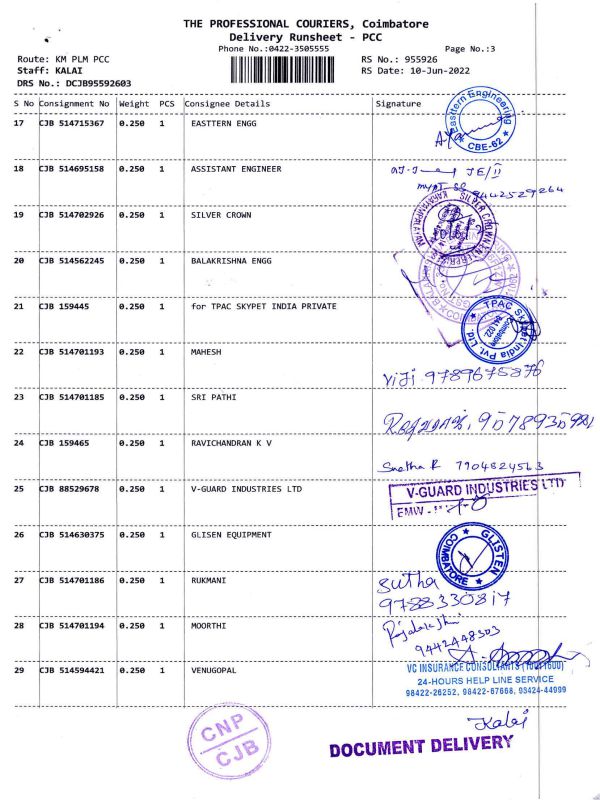 THE PROFESSIONAL COURIERS, Coimbatore
Delivery Runsheet - PCC
Phone No.:0422-3505555
Page No.:3
Route: KM PLM PCC
RS No.: 955926
Staff: KALAI
RS Date: 10-Jun-2022
DRS No.: DCJB95592603
S No Consignment No Weight PCS Consignee Details Signature
17 CJB 514715367 0.250 1 EASTTERN ENGG
Easttern Engineering
CBE-62
18 CJB 514695158 0.250 1 ASSISTANT ENGINEER
JE/II
9442529264
19 CJB 514702926 0.250 1 SILVER CROWN
SILVER CROWN ENTERPRISES
20 CJB 514562245 0.250 1 BALAKRISHNA ENGG
21 CJB 159445 0.250 1 for TPAC SKYPET INDIA PRIVATE
TPAC Skypet India Pvt. Ltd.
Coimbatore
641 022
22 CJB 514701193 0.250 1 MAHESH
ViJi 9789675876
23 CJB 514701185 0.250 1 SRI PATHI
24 CJB 159465 0.250 1 RAVICHANDRAN K V
Snetha R 7904824563
25 CJB 88529678 0.250 1 V-GUARD INDUSTRIES LTD
V-GUARD INDUSTRIES LTD
EMW -
26 CJB 514630375 0.250 1 GLISEN EQUIPMENT
GLISTEN
COIMBATORE
27 CJB 514701186 0.250 1 RUKMANI
Sutha
9788330817
28 CJB 514701194 0.250 1 MOORTHI
9442448303
29 CJB 514594421 0.250 1 VENUGOPAL
VC INSURANCE CONSULTANTS
24-HOURS HELP LINE SERVICE
98422-26252, 98422-67668, 93424-44099
CNP
CJB
Kalai
DOCUMENT DELIVERY